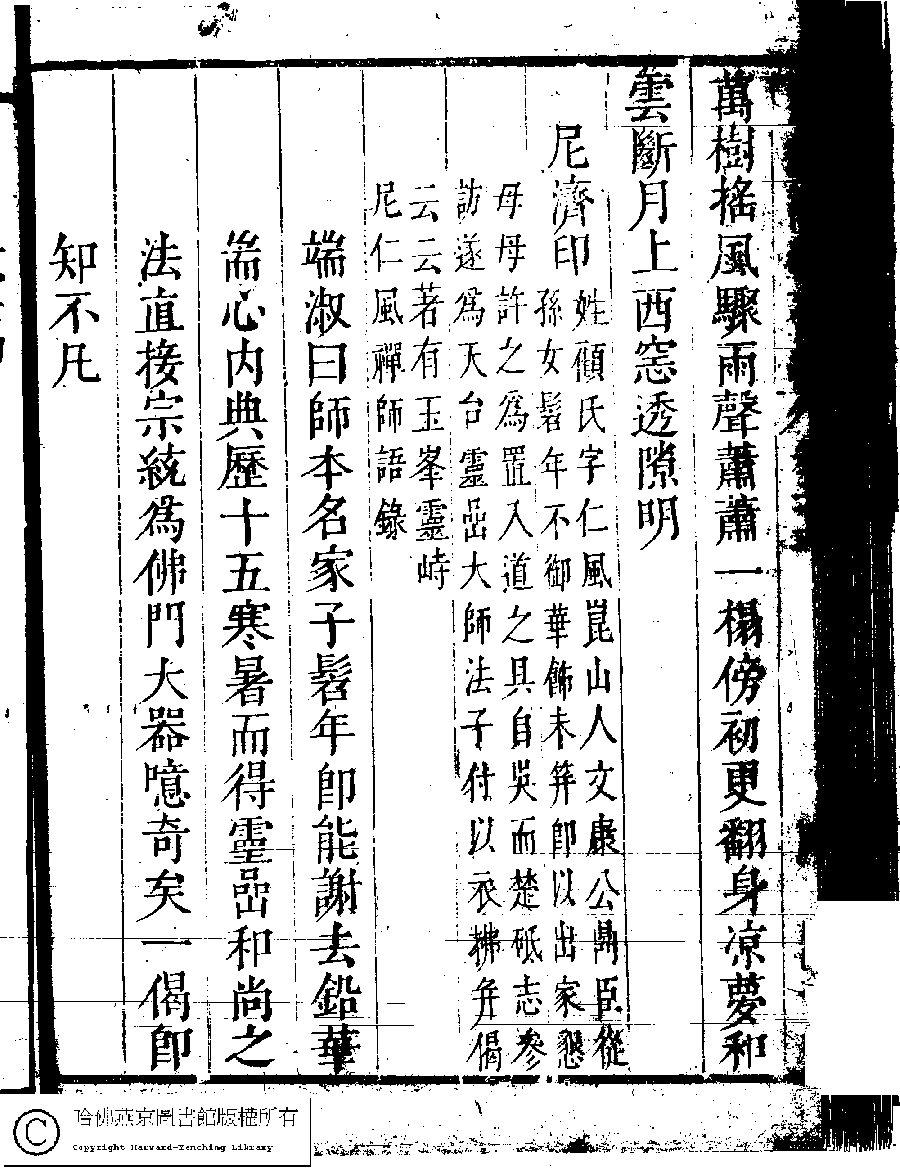 萬樹搖風驟雨聲蕭蕭一榻傍初更翻身凉夢和
雲斷月上西窓透隙明
尼濟印
姓顧氏字仁風崑山人文康公鼎臣從
孫女髫年不御華飾未筓卽以出家懇
母母許之爲置入道之具自吳而楚砥志參
訪遂爲天台靈嵒大師法子付以衣拂并偈
云云著有玉峯靈峙
尼仁風禪師語錄
端淑曰師本名家子髫年卽能謝去鉛華
耑心内典歷十五寒暑而得靈嵒和尚之
法直接宗統爲佛門大器噫奇矣一偈卽
知不凡
哈佛燕京圖書館版權所有
Copyright Harvard-Yenching Library